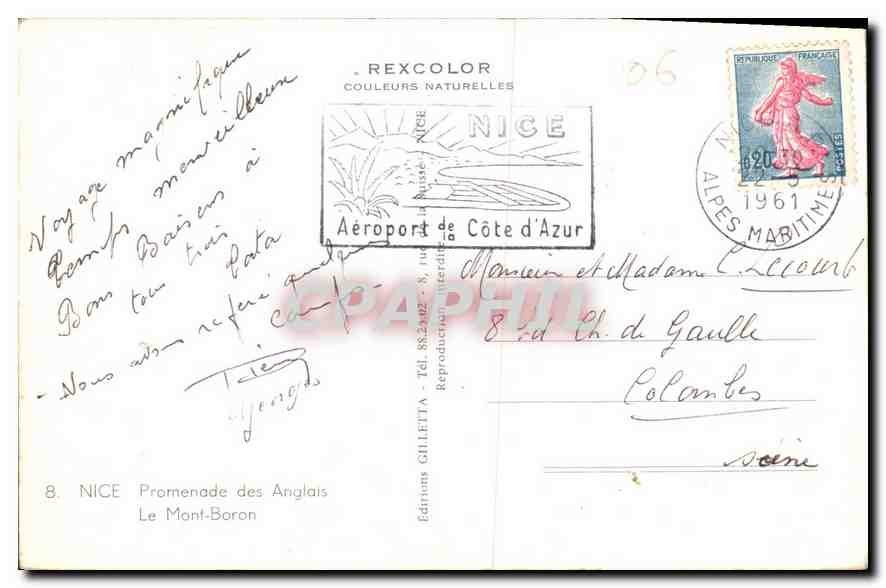 REXCOLOR
COULEURS NATURELLES
06
REPUBLIQUE FRANÇAISE
0,20
POSTES
NICE
22-9
1961
ALPES MARITIMES
NICE
Aéroport de la Côte d'Azur
Voyage magnifique
temps merveilleux
Bons Baisers à
tous trois
Tata
- Nous avons
Georges
Monsieur et Madame C. Lecourb
8 Bd Ch. de Gaulle
Colombes
Seine
Editions GILLETTA - Tél. 88.25.02 - 8, rue de la Suisse - NICE
Reproduction interdite
8. NICE Promenade des Anglais
Le Mont-Boron
CPAPHIL